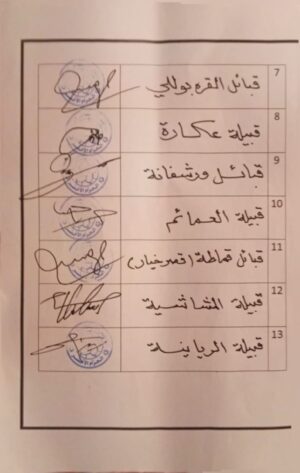 7 قبائل القره بوللي
8 قبيلة عكارة
9 قبائل ورشفانة
10 قبيلة العمائم
11 قبائل قماطة (قصرخيار)
12 قبيلة المشاشية
13 قبيلة الرياينة